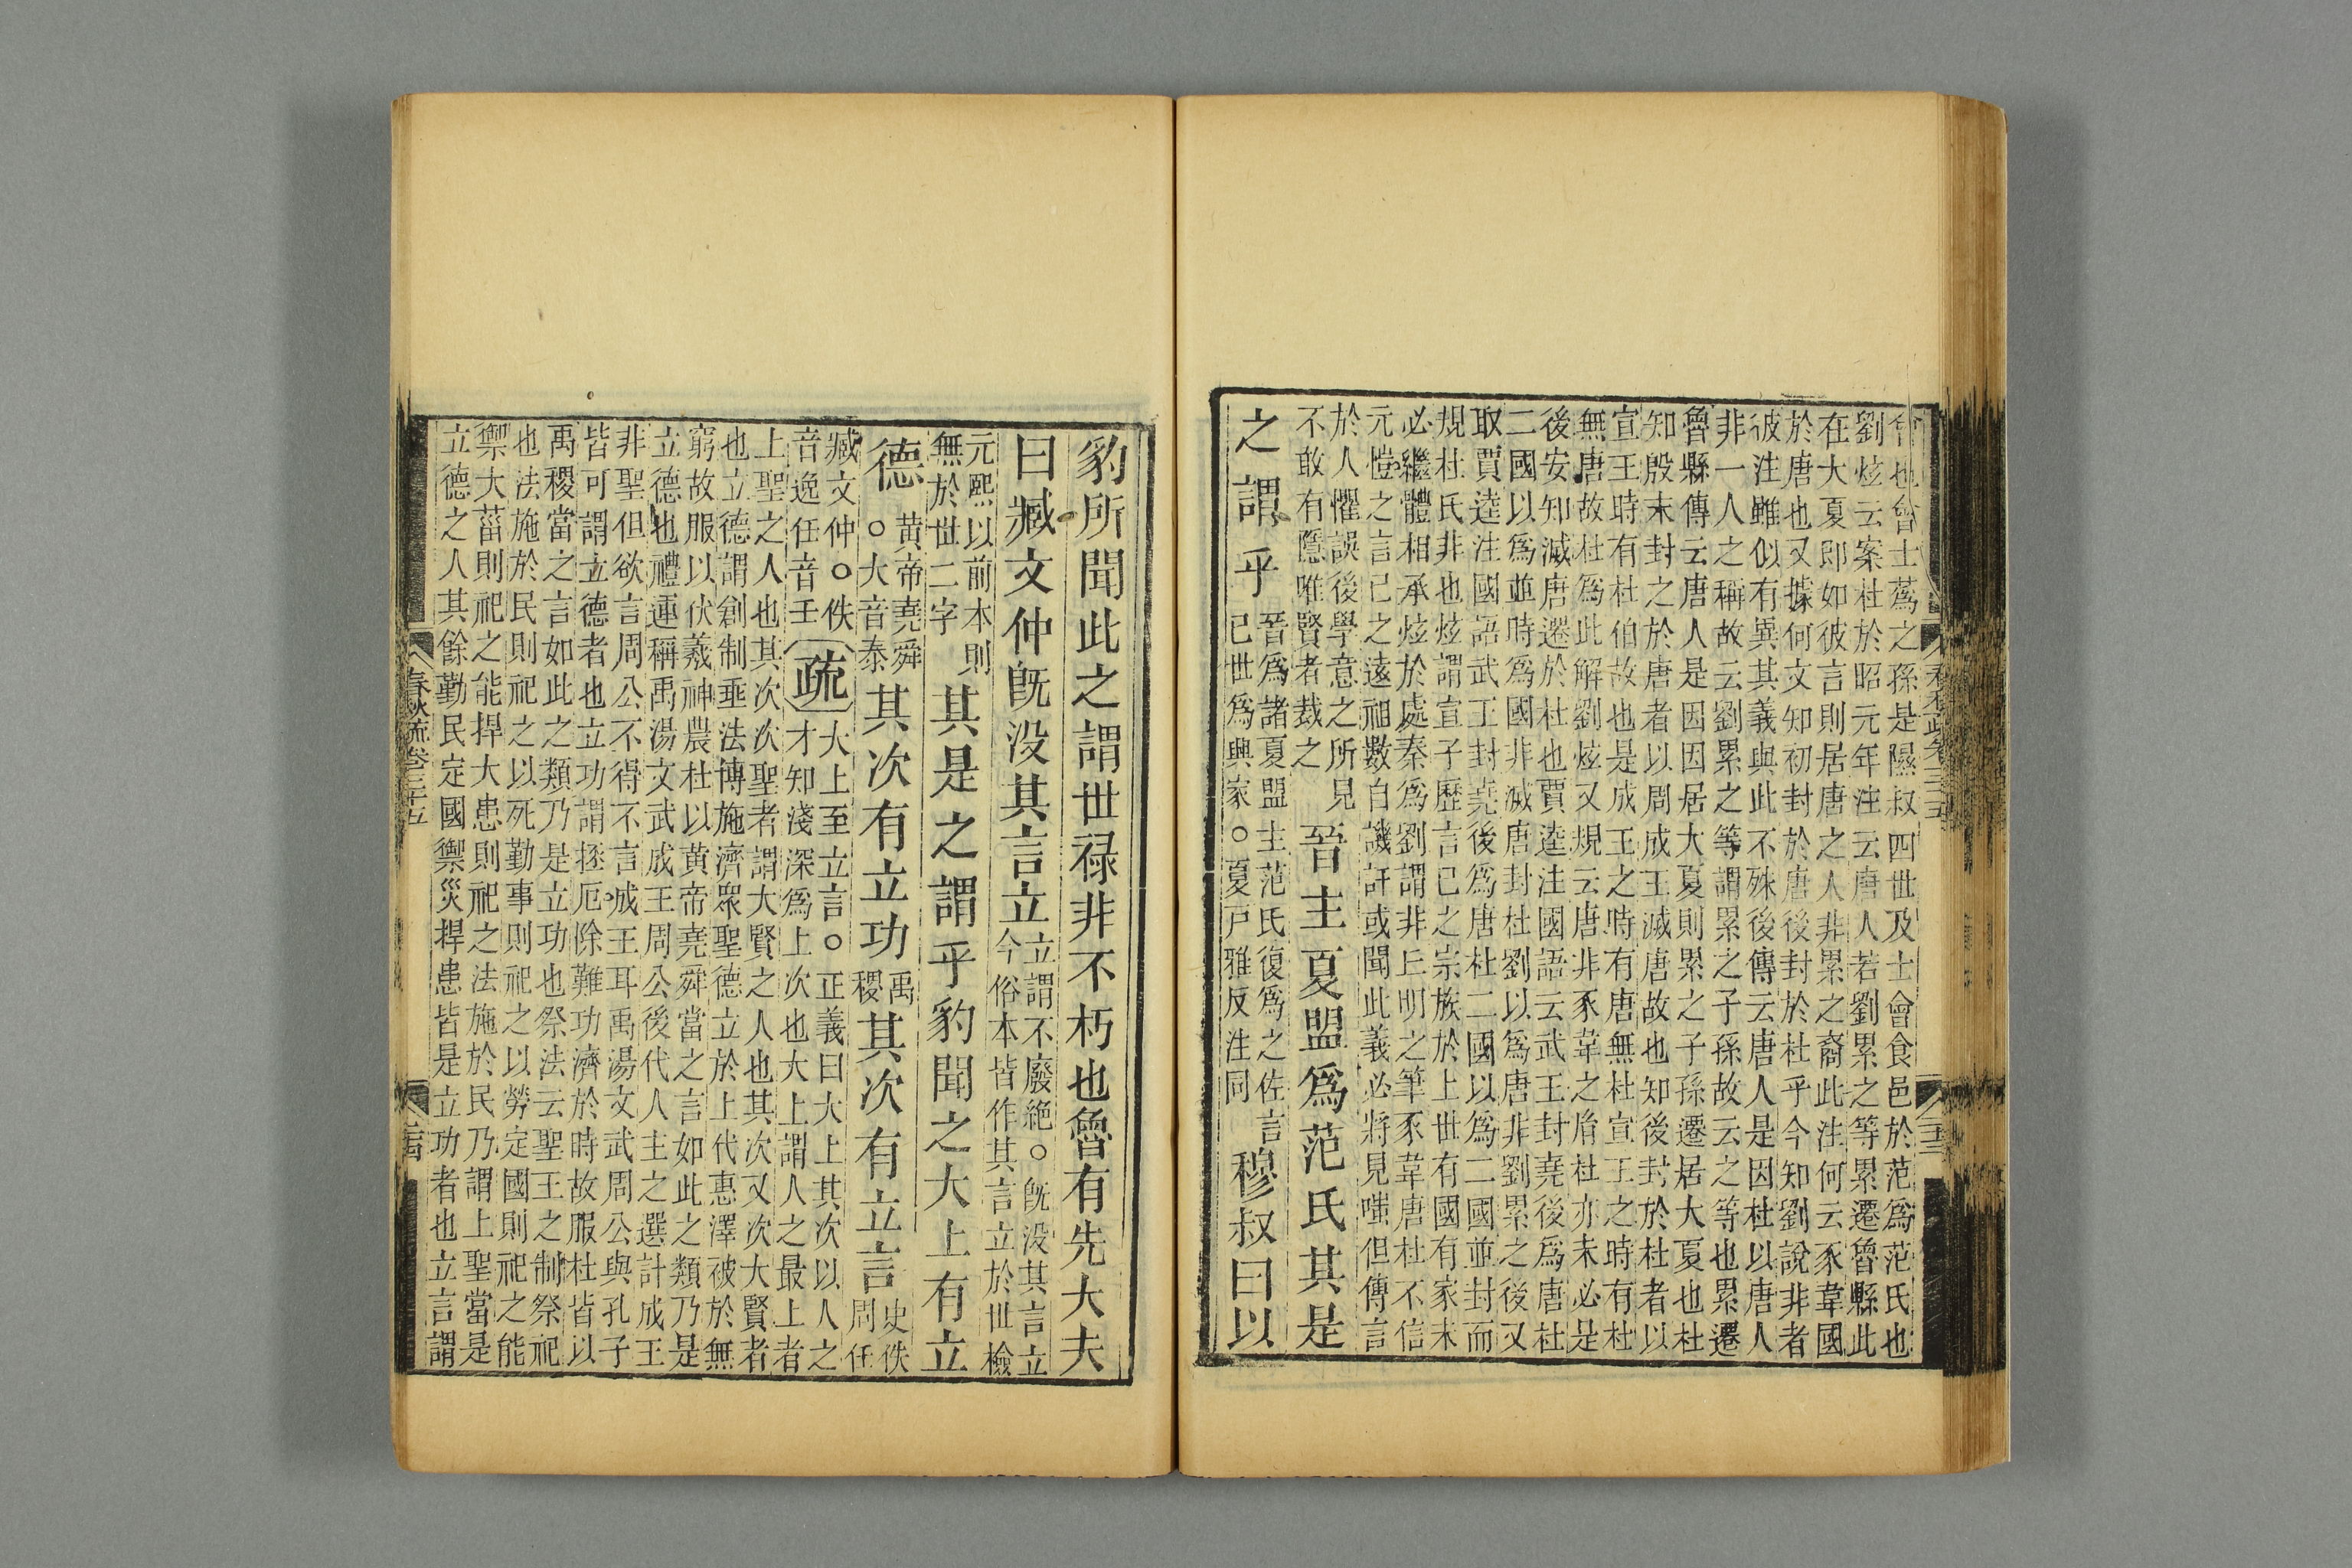 會也會士蒍之孫是隰叔四世及士會食邑於范爲范氏也
劉炫云案杜於昭元年注云唐人若劉累之等累遷魯縣此
在大夏卽如彼言則居唐之人非累之裔此注何云豕韋國
於唐也又據何文知初封於唐後封於杜乎今知劉說非者
彼注雖似有異其義與此不殊後傳云唐人是因杜以唐人
非一人之稱故云劉累之等謂累之子孫故云之等也累遷
魯縣傳云唐人是因因居大夏則累之子孫遷居大夏也杜
知殷末封之於唐者以周成王滅唐故也知後封於杜者以
宣王時有杜伯故也是成王之時有唐無杜宣王之時有杜
無唐故杜爲此解劉炫又規云唐非豕韋之盾杜亦未必是
後安知滅唐遷於杜也賈逵注國語云武王封堯後爲唐杜
二國以爲並時爲國非滅唐封杜劉以爲唐非劉累之後又
取賈逵注國語武王封堯後爲唐杜二國以爲二國並封而
規杜氏非也炫謂宣子歷言己之宗族於上世有國有家未
必繼體相承炫於處秦爲劉謂非丘明之筆豕韋唐杜不信
元愷之言己之遠祖數自譏訐或聞此義必將見嗤但傳言
於人懼誤後學意之所見
不敢有隱唯賢者裁之
晉主夏盟爲范氏其是
之謂乎
晉爲諸夏盟主范氏復爲之佐言
己世爲興家○夏戸雅反注同
穆叔曰以
豹所聞此之謂世祿非不朽也魯有先大夫
曰臧文仲旣没其言立
立謂不廢絶○旣没其言立
今俗本皆作其言立於世檢
元熙以前本則
無於世二字
其是之謂乎豹聞之大上有立
德
黃帝堯舜
○大音泰
其次有立功
禹
稷
其次有立言
史佚
周任
臧文仲○佚
音逸任音壬
疏
大上至立言○正義曰大上其次以人之
才知淺深爲上次也大上謂人之最上者
上聖之人也其次次聖者謂大賢之人也其次又次大賢者
也立德謂創制垂法博施濟眾聖德立於上代惠澤被於無
窮故服以伏羲神農杜以黃帝堯舜當之言如此之類乃是
立德也禮運稱禹湯文武成王周公後代人主之選計成王
非聖但欲言周公不得不言成王耳禹湯文武周公與孔子
皆可謂立德者也立功謂拯厄除難功濟於時故服杜皆以
禹稷當之言如此之類乃是立功也祭法云聖王之制祭祀
也法施於民則祀之以死勤事則祀之以勞定國則祀之能
禦大菑則祀之能捍大患則祀之法施於民乃謂上聖當是
立德之人其餘勤民定國禦災捍患皆是立功者也立言謂
春秋疏卷三十五